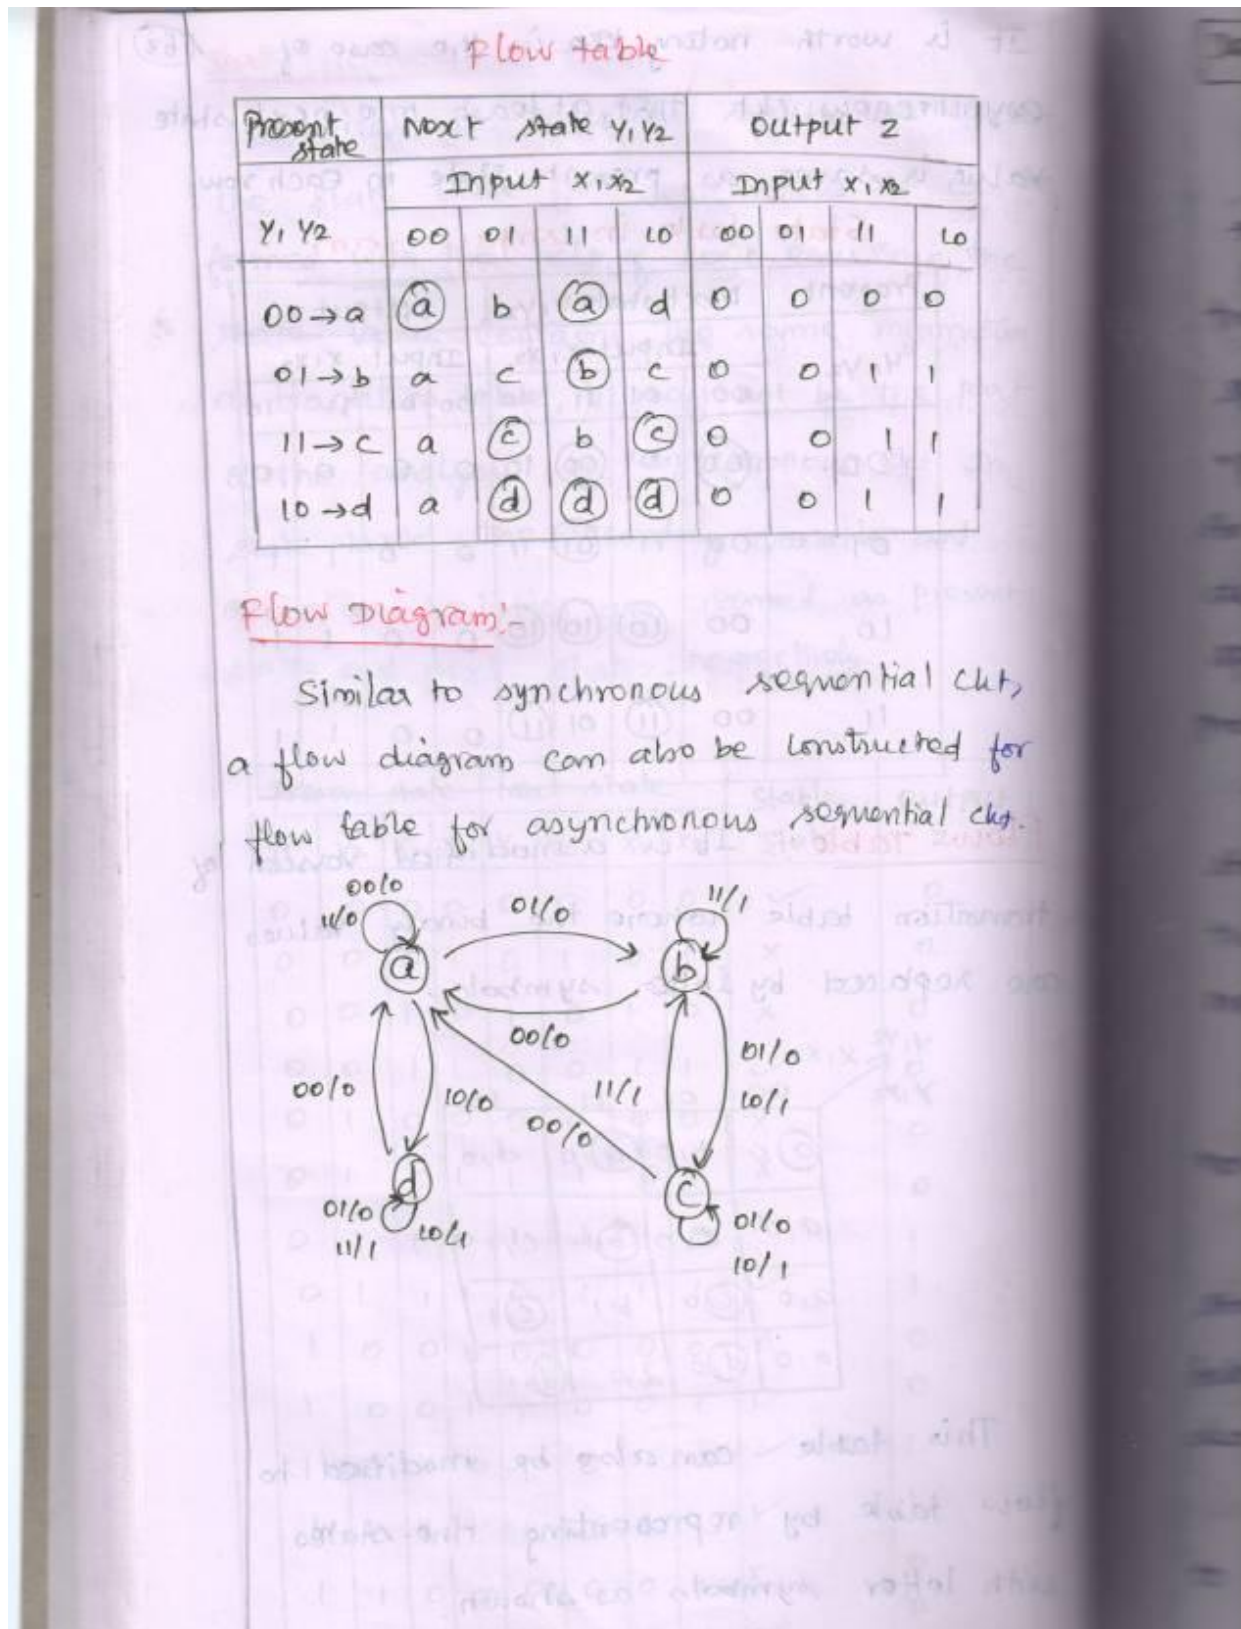 Flow table
Present state Next state Y1 Y2 Output Z
Input x1x2 Input x1x2
Y1 Y2 00 01 11 10 00 01 11 10
00→a a b a d 0 0 0 0
01→b a c b c 0 0 1 1
11→c a c b c 0 0 1 1
10→d a d d d 0 0 1 1
Flow Diagram:
Similar to synchronous sequential ckt,
a flow diagram can also be constructed for
flow table for asynchronous sequential ckt.
00/0
11/0
01/0
11/1
a
b
00/0
01/0
00/0
10/0
11/1
10/1
00/0
d
c
01/0
10/1
11/1
01/0
10/1